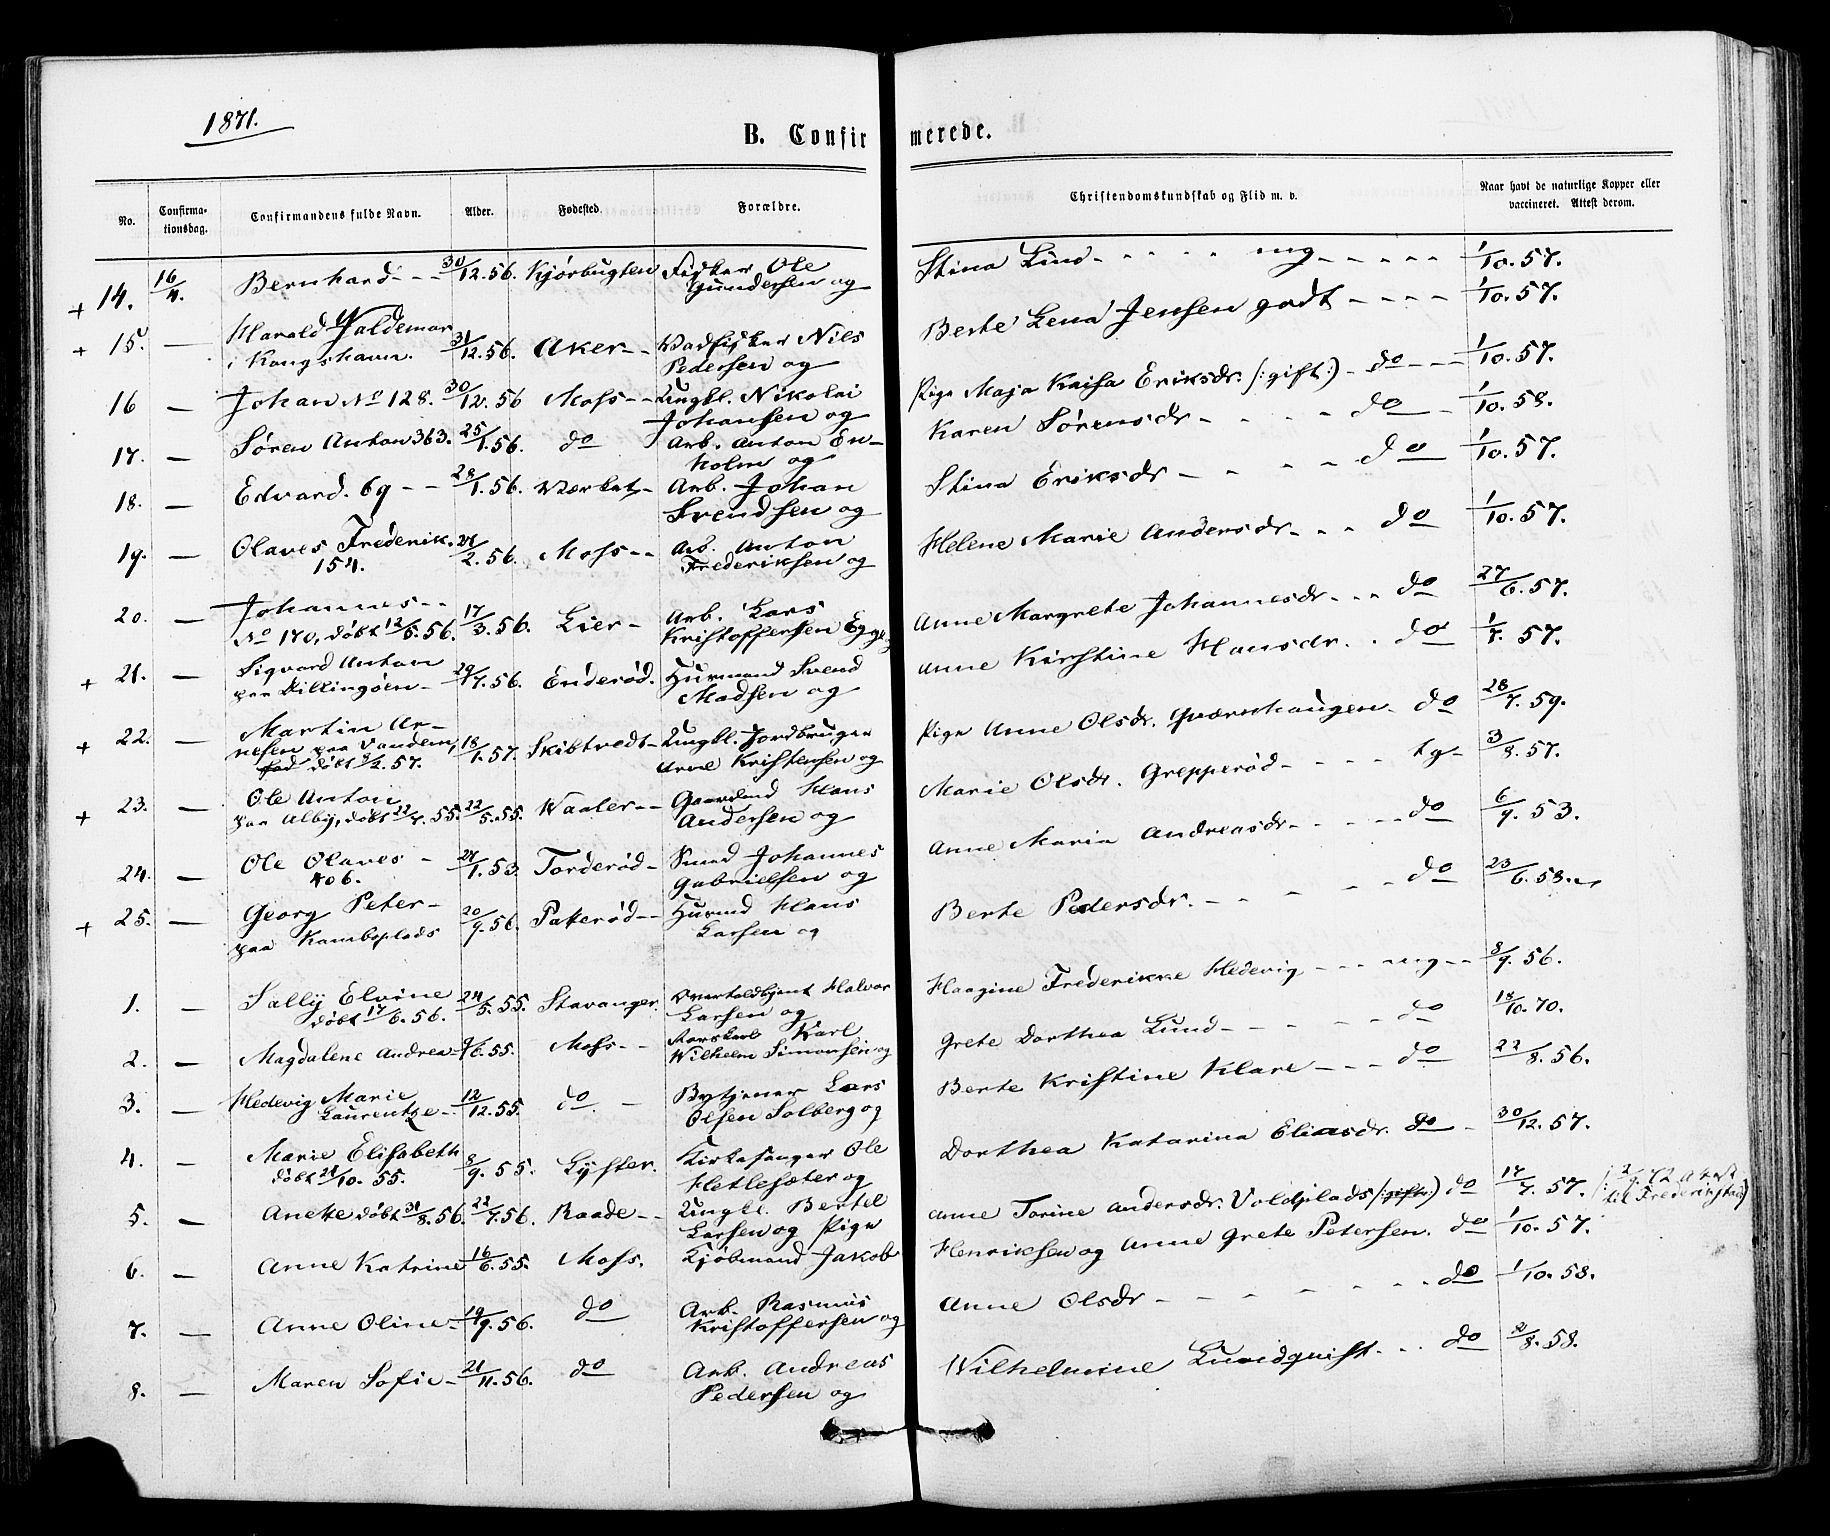 1871.
B. Confirmerede.
No. Confirmationsdag. Confirmandens fulde Navn. Alder. Fødested. Forældre. Christendomskundskab og Flid m. v. Naar havt de naturlige Kopper eller vaccineret. Attest derom.
+ 14. 16/4. Bernhard - - 30/12.56. Kjørbugten Fisker Ole
Gundersen og Stina Lind - - - - - mg - - - - - 1/10.57.
+ 15. — Harald Valdemar
i Kongshavn. 31/12.56. Aker - - Vadfisker Nils
Pedersen og Berte Lena Jensen godt - - - - 1/10.57.
16 — Johan No 128. 30/12.56 Moss - - Ungkl. Nikolai
Johansen og Pige Maja Kaisa Eriksdr. (:gift:) - do - - - 1/10.57.
17. — Søren Anton 363. 25/1.56. do Arb. Anton En-
holm og Karen Sørensdr - - - - do - 1/10.58.
18. — Edvard. 69 - - 28/1.56. Værket - Arb. Johan
Svendsen og Stina Eriksdr - - - - do 1/10.57.
19. — Olaves Frederik.
154. 21/2.56. Moss - - Arb. Anton
Frederiksen og Helene Marie Andersdr. - - do 1/10.57.
20. — Johannes - -
No 170, døbt 12/5.56. 17/3.56. Lier - Arb. Lars
Kristoffersen Egge og Anne Margrete Johannesdr - - - do 27/6.57.
+ 21. — Sigvard Anton
paa Dillingøen - 29/7.56. Enderød. Husmand Svend
Madsen og Anne Kirstine Hansdr. - - do 1/7.57.
+ 22. — Martin Ar-
nesen paa Vandem,
døbt 8/2.57. 18/1.57. Skibtvedt - Ungkl. Jordbruger
Arne Kristensen og Pige Anne Olsdr. Qværnhaugen - do 28/7.59.
+ 23. — Ole Anton
paa Alby, døbt 22/7.55. 22/5.55. Waaler - - Gaardmd Hans
Andersen og Marie Olsdr. Grepperød - - - - tg - 3/8.57.
24. — Ole Olaves -
406. 21/1.53. Torderød - Smed Johannes
Gabrielsen og Anne Maria Andreasdr - - - - - do 6/9.53.
+ 25. — Georg Peter -
paa Kamboplads 20/9.56. Paterød - - Husmd Hans
Larsen og Berte Pedersdr. - - - - - do 23/6.58.
1. — Sally Elvine
døbt 17/6.56. 24/5.55. Stavanger. Overtoldbjent Halvor
Larsen og Haagine Frederikke Hedevig - - - mg - - 8/9.56.
2. — Magdalene Andrea - /6.55. Moss - - Karl
Wilhelm Simonsen og Grete Dorthea Lund - - - - - do 18/10.70.
3. — Hedevig Marie
Laurentze - - 12/12.55. do - Bytjener Lars
Olsen Solberg og Berte Kristine Klare - - - do 22/8.56.
4. — Marie Elisabeth
døbt 21/10.55. 8/9.55. Lyster. Kirkesanger Ole
Hetlesæter og Dorthea Katarina Eliasdr. do - 30/12.57.
5. — Anette døbt 31/8.56. 22/7.56. Raade - - Ungkl. Bertel
Larsen og Pige Anne Torine Andersdr. Voldsplads (:gift:) do 17/7.57. (: 2/9.72 Attest
til Fredrikstad)
6. — Anne Katrine 16/6.55. Moss. Kjøbmand Jakob
Henriksen og Anne Grete Petersen. do 1/10.57.
7. — Anne Oline - 19/9.56. do Arb. Rasmus
Kristoffersen og Anne Olsdr - - - - - - do 1/10.58.
8. — Maren Sofie - 21/11.56. do Arb. Andreas
Pedersen og Wilhelmine Lundquist - - - do 2/8.58.